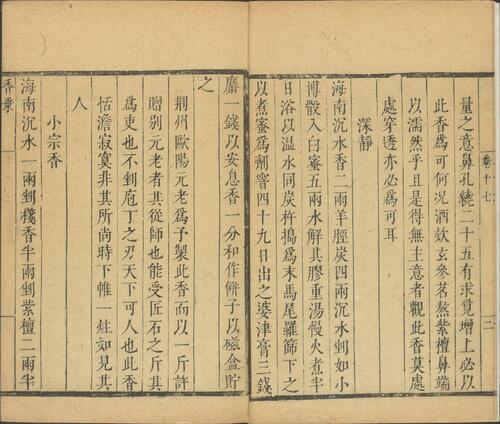 量之意鼻孔繞二十五有求覓增上必以
此香爲可何况酒欵玄參茗熬紫檀鼻端
以濡然乎且是得無主意者觀此香莫處
處穿透亦必爲可耳
深靜
海南沉水香二兩羊脛炭四兩沉水剉如小
博骰入白蜜五兩水解其膠重湯慢火煮半
日浴以温水同炭杵搗爲末馬尾羅篩下之
以煮蜜爲劑窨四十九日出之婆津膏三錢
卷十七
二
麝一錢以安息香一分和作餅子以磁盒貯
之
荆州歐陽元老爲予製此香而以一斤許
贈别元老者其從師也能受匠石之斤其
爲吏也不剉庖丁之刃天下可人也此香
恬澹寂寞非其所尚時下帷一炷如見其
人
小宗香
海南沉水一兩剉棧香半兩剉紫檀二兩半
香乘